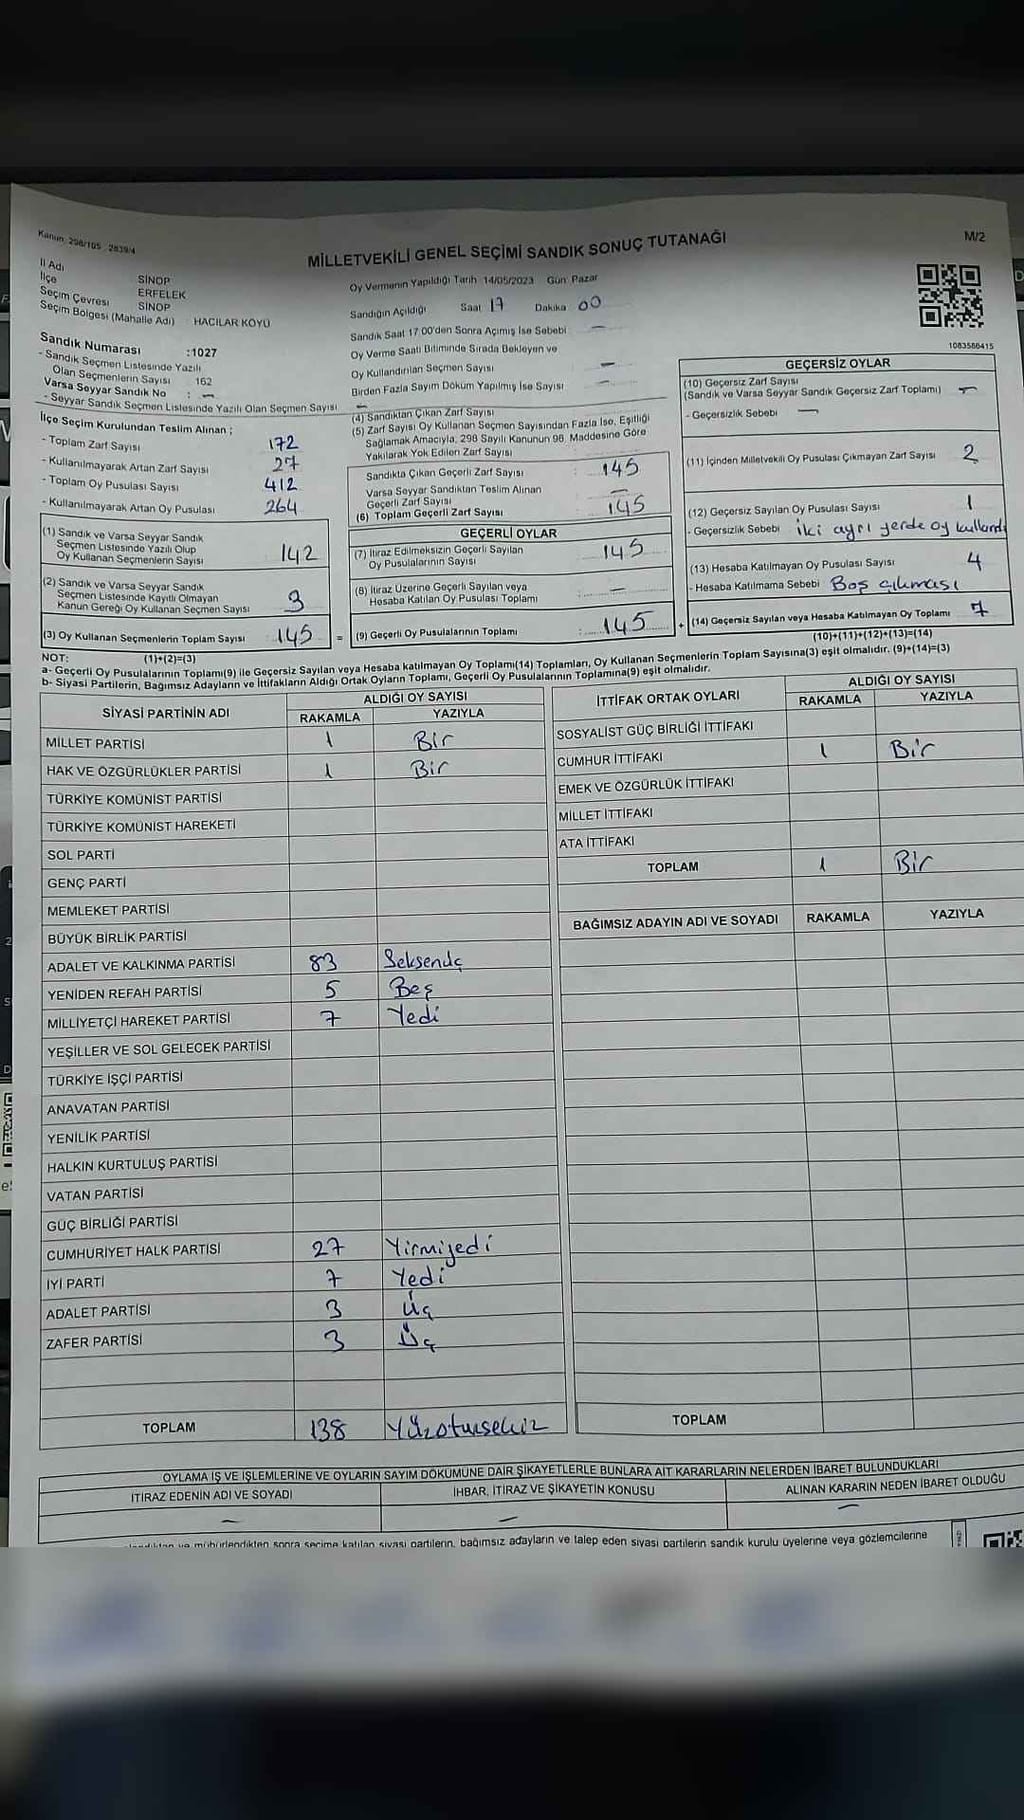 Kanun: 298/105 - 2839/4
MİLLETVEKİLİ GENEL SEÇİMİ SANDIK SONUÇ TUTANAĞI
M/2
İl Adı SİNOP
İlçe ERFELEK
Seçim Çevresi SİNOP
Seçim Bölgesi (Mahalle Adı) HACILAR KÖYÜ
Oy Vermenin Yapıldığı Tarih 14/05/2023 Gün Pazar
Sandığın Açıldığı Saat 17 Dakika 00
Sandık Saat 17:00'den Sonra Açılmış İse Sebebi –
Oy Verme Saati Bitiminde Sırada Bekleyen ve
Oy Kullandırılan Seçmen Sayısı –
Birden Fazla Sayım Döküm Yapılmış İse Sayısı –
1083586415
Sandık Numarası :1027
- Sandık Seçmen Listesinde Yazılı
Olan Seçmenlerin Sayısı 162
Varsa Seyyar Sandık No : –
- Seyyar Sandık Seçmen Listesinde Yazılı Olan Seçmen Sayısı –
İlçe Seçim Kurulundan Teslim Alınan ;
- Toplam Zarf Sayısı 172
- Kullanılmayarak Artan Zarf Sayısı 27
- Toplam Oy Pusulası Sayısı 412
- Kullanılmayarak Artan Oy Pusulası 264
(1) Sandık ve Varsa Seyyar Sandık
Seçmen Listesinde Yazılı Olup
Oy Kullanan Seçmenlerin Sayısı 142
(2) Sandık ve Varsa Seyyar Sandık
Seçmen Listesinde Kayıtlı Olmayan
Kanun Gereği Oy Kullanan Seçmen Sayısı 3
(3) Oy Kullanan Seçmenlerin Toplam Sayısı 145 =
(4) Sandıktan Çıkan Zarf Sayısı
(5) Zarf Sayısı Oy Kullanan Seçmen Sayısından Fazla İse, Eşitliği
Sağlamak Amacıyla, 298 Sayılı Kanunun 98. Maddesine Göre
Yakılarak Yok Edilen Zarf Sayısı
Sandıkta Çıkan Geçerli Zarf Sayısı : 145
Varsa Seyyar Sandıktan Teslim Alınan
Geçerli Zarf Sayısı –
(6) Toplam Geçerli Zarf Sayısı : 145
GEÇERLİ OYLAR
(7) İtiraz Edilmeksizin Geçerli Sayılan
Oy Pusulalarının Sayısı 145
(8) İtiraz Üzerine Geçerli Sayılan veya
Hesaba Katılan Oy Pusulası Toplamı : –
(9) Geçerli Oy Pusulalarının Toplamı : 145 +
GEÇERSİZ OYLAR
(10) Geçersiz Zarf Sayısı
(Sandık ve Varsa Seyyar Sandık Geçersiz Zarf Toplamı) –
- Geçersizlik Sebebi –
(11) İçinden Milletvekili Oy Pusulası Çıkmayan Zarf Sayısı 2
(12) Geçersiz Sayılan Oy Pusulası Sayısı 1
- Geçersizlik Sebebi İki ayrı yerde oy kullandı
(13) Hesaba Katılmayan Oy Pusulası Sayısı 4
- Hesaba Katılmama Sebebi Boş çıkması
(14) Geçersiz Sayılan veya Hesaba Katılmayan Oy Toplamı 7
(10)+(11)+(12)+(13)=(14)
NOT: (1)+(2)=(3)
a- Geçerli Oy Pusulalarının Toplamı(9) ile Geçersiz Sayılan veya Hesaba katılmayan Oy Toplamı(14) Toplamları, Oy Kullanan Seçmenlerin Toplam Sayısına(3) eşit olmalıdır. (9)+(14)=(3)
b- Siyasi Partilerin, Bağımsız Adayların ve İttifakların Aldığı Ortak Oyların Toplamı, Geçerli Oy Pusulalarının Toplamına(9) eşit olmalıdır.
SİYASİ PARTİNİN ADI ALDIĞI OY SAYISI
RAKAMLA YAZIYLA
MİLLET PARTİSİ 1 Bir
HAK VE ÖZGÜRLÜKLER PARTİSİ 1 Bir
TÜRKİYE KOMÜNİST PARTİSİ
TÜRKİYE KOMÜNİST HAREKETİ
SOL PARTİ
GENÇ PARTİ
MEMLEKET PARTİSİ
BÜYÜK BİRLİK PARTİSİ
ADALET VE KALKINMA PARTİSİ 83 Seksenüç
YENİDEN REFAH PARTİSİ 5 Beş
MİLLİYETÇİ HAREKET PARTİSİ 7 Yedi
YEŞİLLER VE SOL GELECEK PARTİSİ
TÜRKİYE İŞÇİ PARTİSİ
ANAVATAN PARTİSİ
YENİLİK PARTİSİ
HALKIN KURTULUŞ PARTİSİ
VATAN PARTİSİ
GÜÇ BİRLİĞİ PARTİSİ
CUMHURİYET HALK PARTİSİ 27 Yirmiyedi
İYİ PARTİ 7 Yedi
ADALET PARTİSİ 3 Üç
ZAFER PARTİSİ 3 Üç
TOPLAM 138 Yüzotuzsekiz
İTTİFAK ORTAK OYLARI ALDIĞI OY SAYISI
RAKAMLA YAZIYLA
SOSYALİST GÜÇ BİRLİĞİ İTTİFAKI
CUMHUR İTTİFAKI 1 Bir
EMEK VE ÖZGÜRLÜK İTTİFAKI
MİLLET İTTİFAKI
ATA İTTİFAKI
TOPLAM 1 Bir
BAĞIMSIZ ADAYIN ADI VE SOYADI RAKAMLA YAZIYLA
TOPLAM
OYLAMA İŞ VE İŞLEMLERİNE VE OYLARIN SAYIM DÖKÜMÜNE DAİR ŞİKAYETLERLE BUNLARA AİT KARARLARIN NELERDEN İBARET BULUNDUKLARI
İTİRAZ EDENİN ADI VE SOYADI İHBAR, İTİRAZ VE ŞİKAYETİN KONUSU ALINAN KARARIN NEDEN İBARET OLDUĞU
– – –
ve mühürlendikten sonra seçime katılan siyasi partilerin, bağımsız adayların ve talep eden siyasi partilerin sandık kurulu üyelerine veya gözlemcilerine